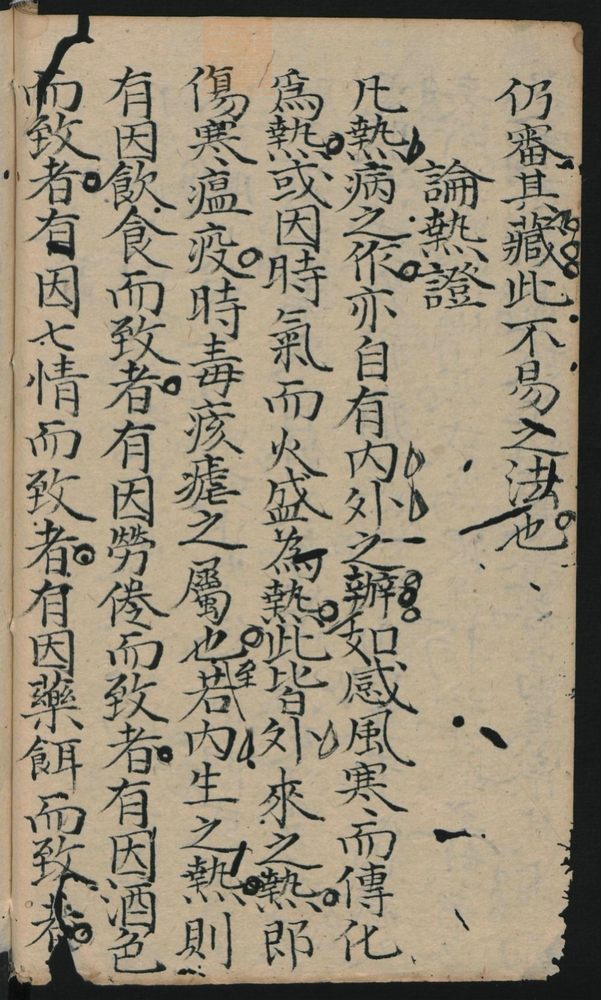 仍審其藏此不易之法也
論熱證
凡熱病之作亦自有内外之辦如感風寒而傳化
爲熱或因時氣而火盛為熱此皆外來之熱即
傷寒瘟疫時毒痎瘧之屬也至若内生之熱則
有因飲食而致者有因勞倦而致者有因酒色
而致者有因七情而致者有因藥餌而致者